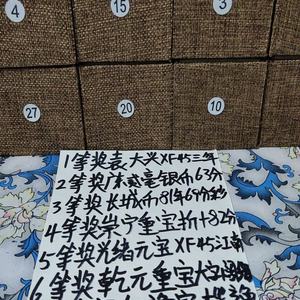 4
15
3
27
20
10
1等奖袁大头XF45三年
2等奖广东贰毫银币63分
3等奖长城币81年69分
4等奖崇宁重宝折十82分
5等奖光绪元宝XF45江南
6等奖乾元重宝